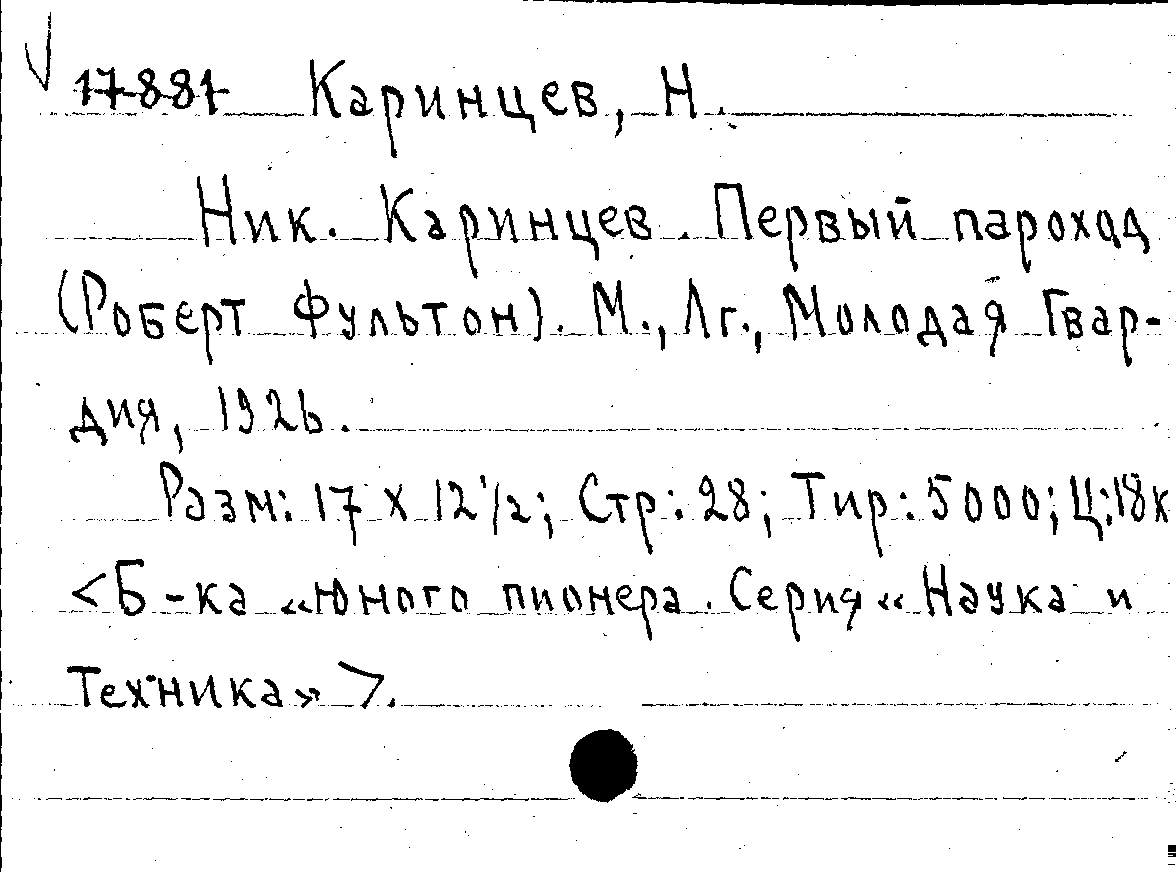 17881 Каринцев, Н.
Ник. Каринцев. Первый пароход
(Роберт Фультон). М., Лг., Молодая Гвар-
дия, 1926.
Разм: 17 х 12 1/2; Стр: 28; Тир: 5000; Ц: 18к
<Б-ка «юного пионера. Серия «Наука и
Техника»>.